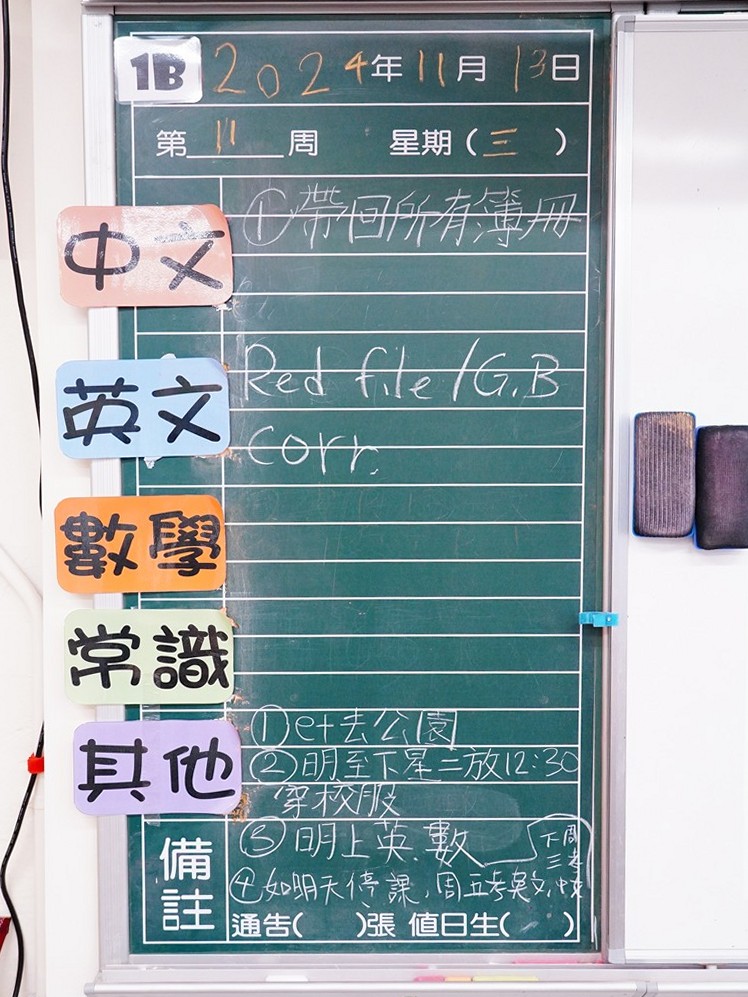 1B 2024年11月13日
第11周 星期(三)
中文 ①帶回所有簿冊
英文 Red file/G.B
corr.
數學
常識
其他 ①e+去公園
②明至下星二放12:30
穿校服
備註 ③明上英.數
下周
三考
④如明天停課,周五考英文,中文
通告( )張 值日生( )